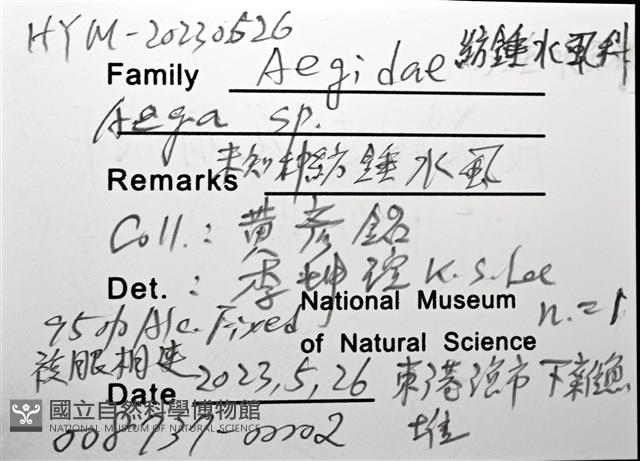 HYM-20230526
Family Aegidae 紡錘水虱科
Aega sp.
Remarks 未知種紡錘水虱
Coll.: 黃彥銘
Det.: 李坤瑄 K.S. Lee
National Museum n=1
95% Alc. Fixed of Natural Science
複眼相連
Date 2023, 5, 26 東港漁市下雜魚堆
國立自然科學博物館
NATIONAL MUSEUM OF NATURAL SCIENCE